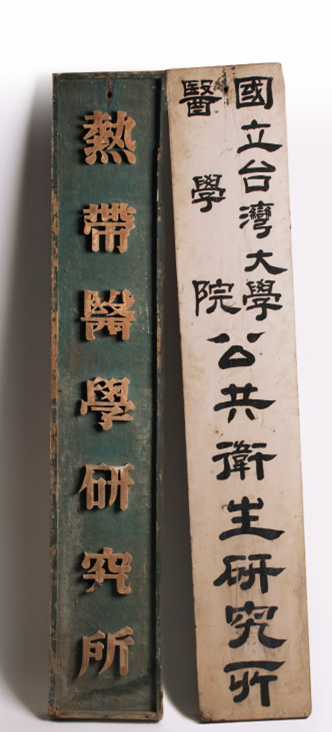 熱帶醫學研究所
國立台灣大學
醫學院
公共衛生研究所